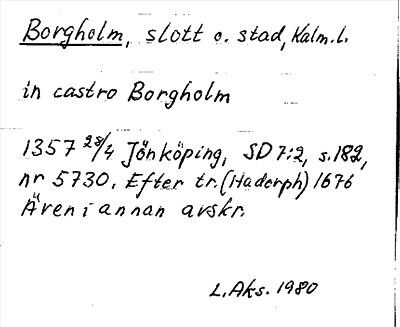 Borgholm, slott o. stad, Kalm. l.
in castro Borgholm
1357 28/4 Jönköping, SD 7:2, s. 182,
nr 5730. Efter tr. (Hadorph) 1676
Även i annan avskr.
L. Aks. 1980